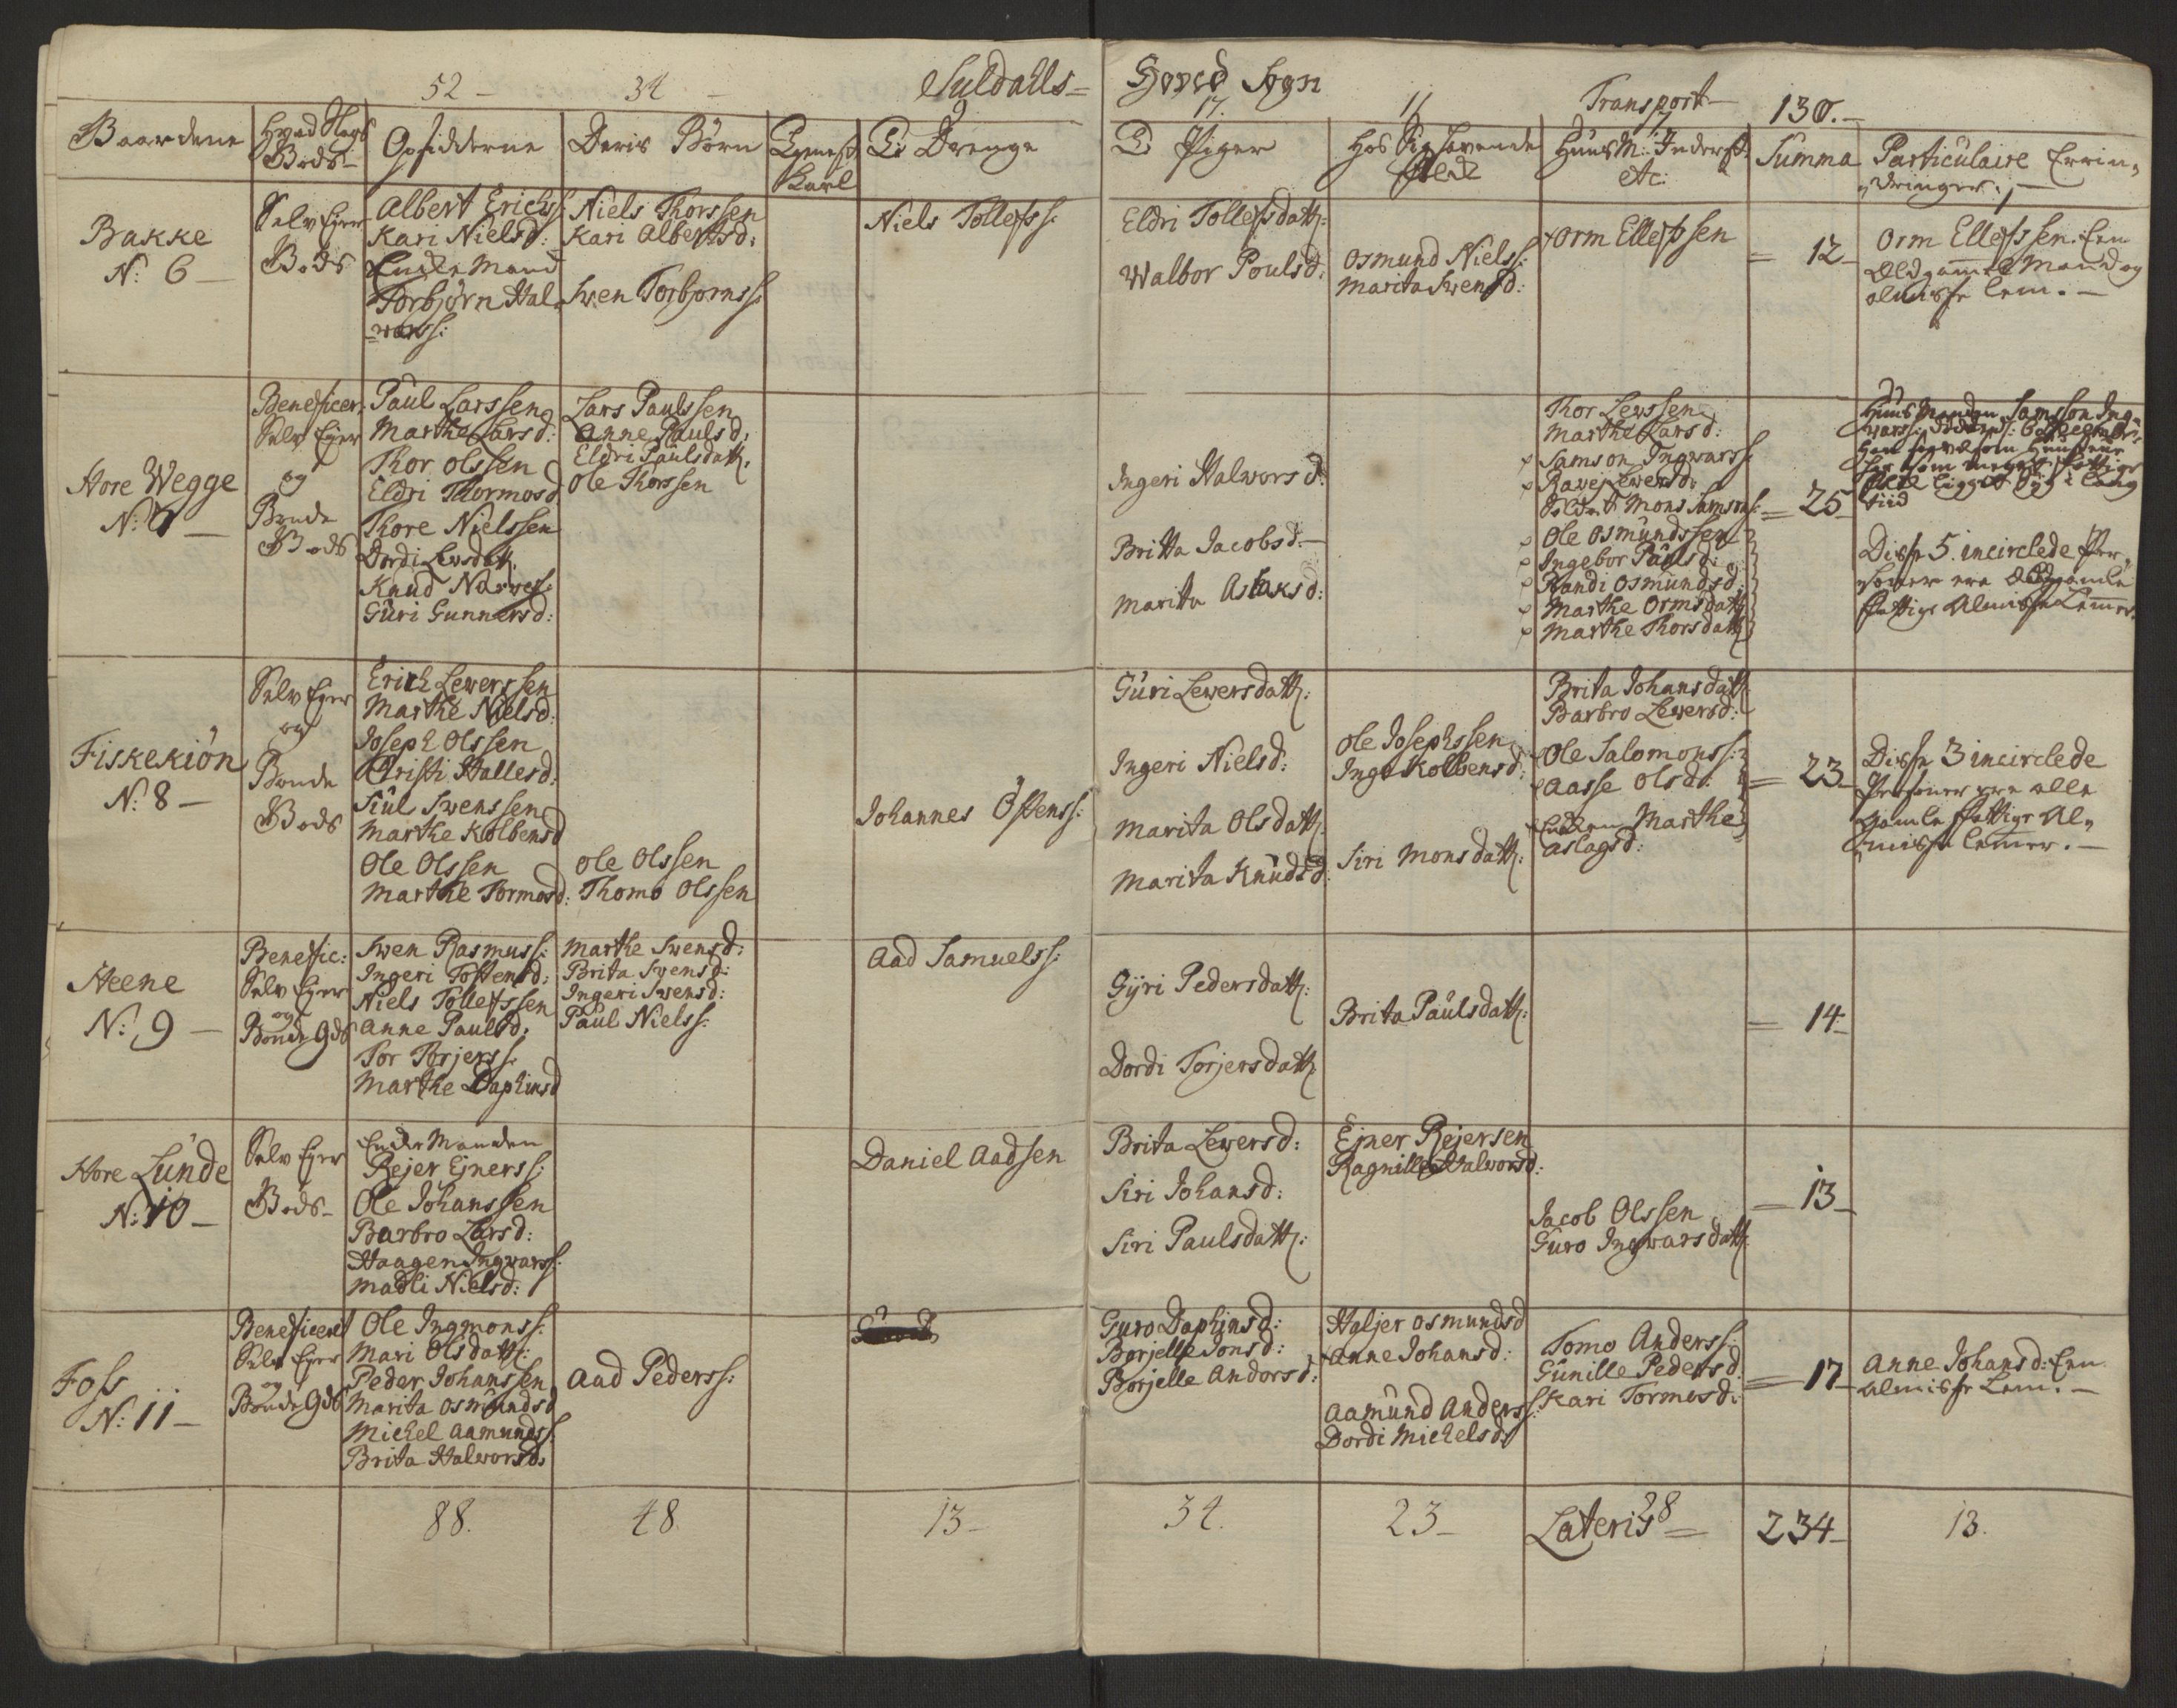 52 - 34 - Suldalls= Hoved Sogn
17. 11 Transport 7 130.-
Gaardene Hvad Slags Opsidderne Deris Børn Tienest Ei Drenge Ei Piger Hos Sig havende Huus M: Inderst Summa Particulaire Erin„
Gods- Karl Folk etc: „dringer.
Bakke
N: 6 -
Selv Eger
Gods
Albert Erichs:
Kari Nielsd:
Enke Mand
Torbjørn Hal„
=vors:
Niels Thorssen
Kari Albertsd:
Swen Torbjorns:
Niels Tollefss:
Eldri Tollefsdatt:
Walbor Poulsd:
Osmund Niels:
Marita Swensd:
Orm Ellefsen
= 12 -
Orm Ellefssen. Een
Eldgamel Mand og
almisse Lem. -
Hore Wegge
N: 7 -
Beneficer.
Selv Eger
og
Bonde
Gods
Paul Larssen
Marthe Larsd:
Thor Olssen
Eldri Thormosd
Thore Nielssen
Dordi Lewsdatt.
Knud Narves:
Guri Gunnarsd:
Lars Paulssen
Anne Paulsd:
Eldri Paulsdatt.
Ole Thorssen
Ingeri Halworsd:
Britta Jacobsd. -
Marita Aslaksd:
Thor Lewssen
Marthe Larsd:
Samson Ingwars:
Rawe Lewersd:
Soldat Mons Samsons:
Ole Osmundssen
Ingebor Paulsd:
Randi Osmundsd:
Marthe Ormsdatt
Marthe Thorsdatt
= 25
Huus Manden Samsson Ing„
wars: døde d: 6 Decembr:
tiid
Disse 5. incirclede Per„
„soner ere Eldgamle
fattige Almisse Lemmer.
Fiskekiön
N: 8 -
Selv Eger
og
Bonde
Gods
Erich Lewerssen
Marthe Nielsd:
Joseph Olssen
Christi Hallesd:
Siul Swenssen
Marthe Kolbensd
Ole Olssen
Marthe Tormosd:
Ole Olssen
Thomo Olssen
Johannes Östens:
Guri Lewersdatt:
Ingeri Nielsd:
Marita Olsdatt.
Marita Knudsd:
Ole Josephssen
Inge Kolbensd:
Siri Monsdatt:
Brita Johansdatt
Barbro Lewersd:
Ole Salomons:
Aasse Olsd:
Enken Marthe
Aslagsd:
= 23 -
Disse 3 incirclede
Personer ere alle
gamle fattige Al„
„misse Lemmer. -
Heene
N: 9 -
Benefic:
Selv Eger
og
Bonde Gds
Swen Rasmuss:
Ingeri Tostensd:
Niels Tollefssen
Anne Paulsd:
Tor Torjers:
Marthe Daphinsd
Marthe Swensd:
Brita Swensd:
Ingeri Swensd:
Paul Niels:
Aad Samuels:
Gÿri Pedersdatt:
Dordi Torjersdatt
Brita Paulsdatt:
= 14 -
Hore Lunde
N: 10 -
Selv Eger
Gods -
Enke Manden
Rejer Ejners:
Ole Johanssen
Barbro Larsd:
Haagen Ingwars:
Madli Nielsd:
Daniel Aadsen
Brita Lewersd:
Siri Johansd:
Siri Paulsdatt:
Ejner Rejersen
Ragnille Halworsd:
Jacob Olssen
Guro Ingwarsdatt:
= 13 -
Foss
N: 11 -
Beneficeret
Selv Eger
og
Bonde Gds
Ole Ingmons:
Mari Olsdatt:
Peder Johanssen
Marita Osmundsd
Michel Aamunds:
Brita Halworsd:
Aad Peders:
Guro Daphinsd:
Borjelle Jonsd:
Borjelle Andorsd:
Haljer Osmundsd
Anne Johansd:
Aamund Anders:
Dordi Michelsd:
Tomo Anders:
Gunille Pedersd:
Kari Tormosd:
= 17
Anne Johansd: Een
almisse Lem. -
88. 48. 13 - 34. 23 - Lateris 28 = 234 - 13.